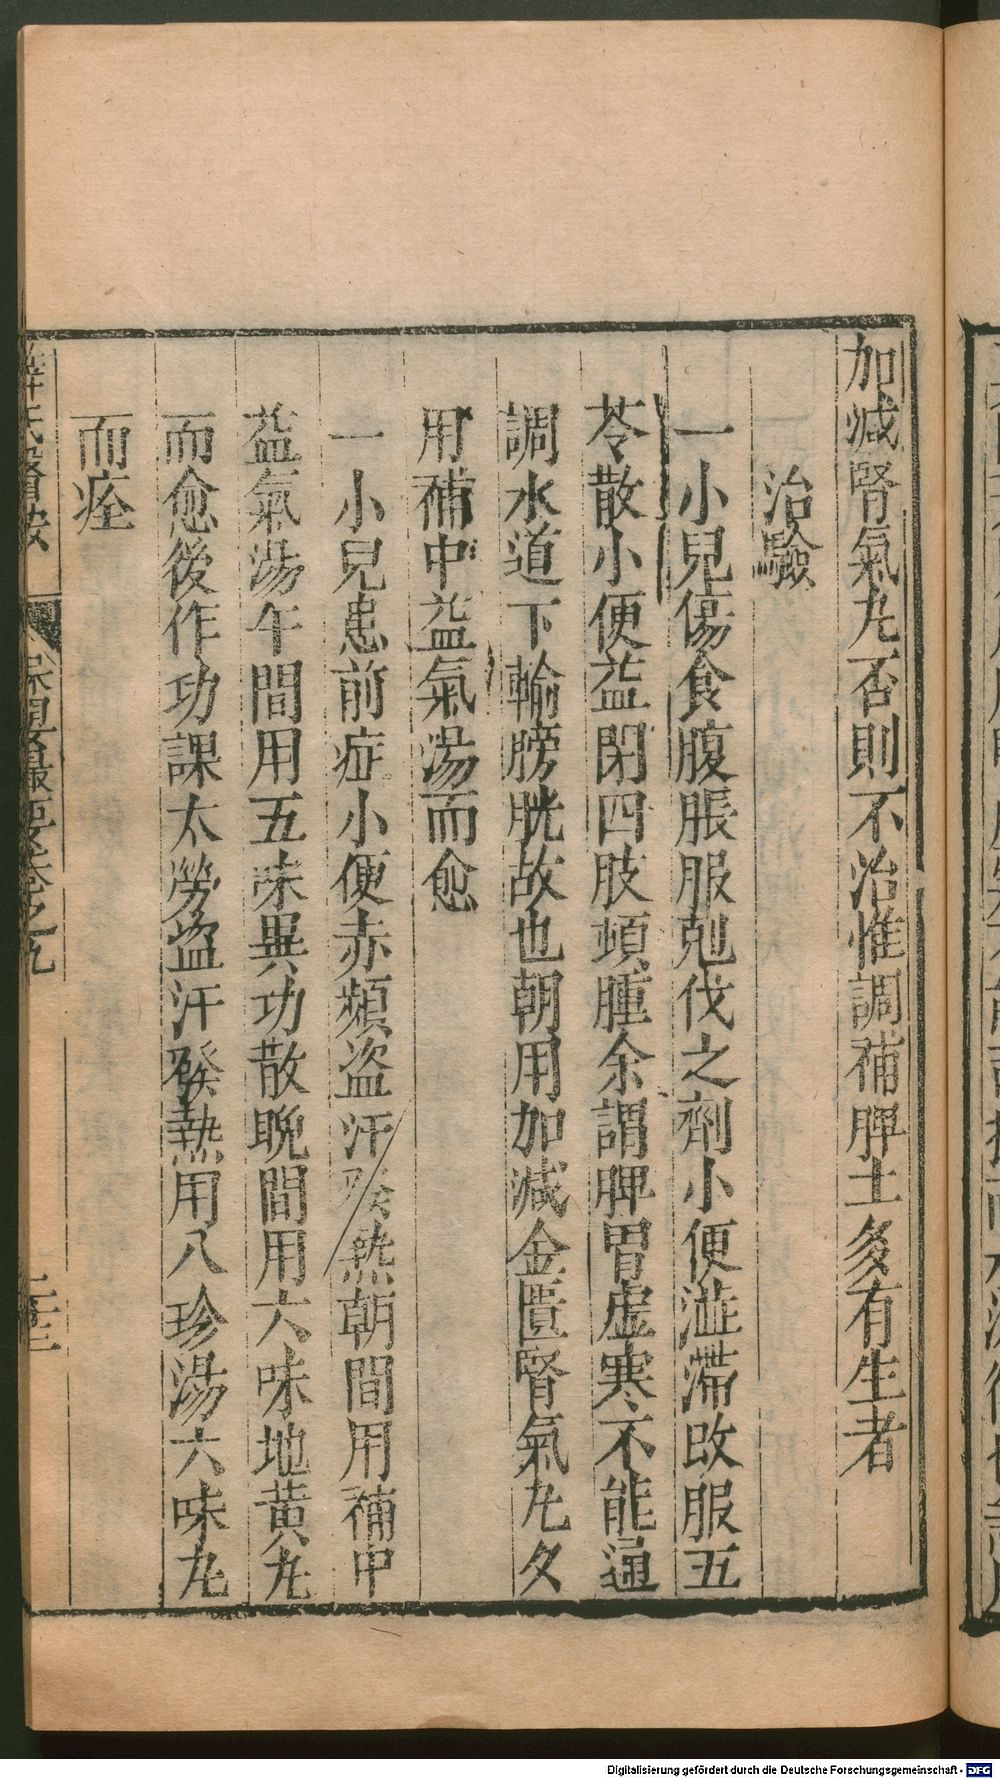 加減腎氣丸否則不治惟調補脾土多有生者
治驗
一小兒傷食腹脹服尅伐之劑小便澁滯改服五
苓散小便益閉四肢頓腫余謂脾胃虛寒不能通
調水道下輸膀胱故也朝用加減金匱腎氣丸夕
用補中益氣湯而愈
一小兒患前症小便赤頻盜汗發熱朝間用補中
益氣湯午間用五味異功散晩間用六味地黃丸
而愈後作功課太勞盜汗發熱用八珍湯六味丸
而痊
薛氏醫按 保嬰撮要卷之九
Digitalisierung gefördert durch die Deutsche Forschungsgemeinschaft - DFG